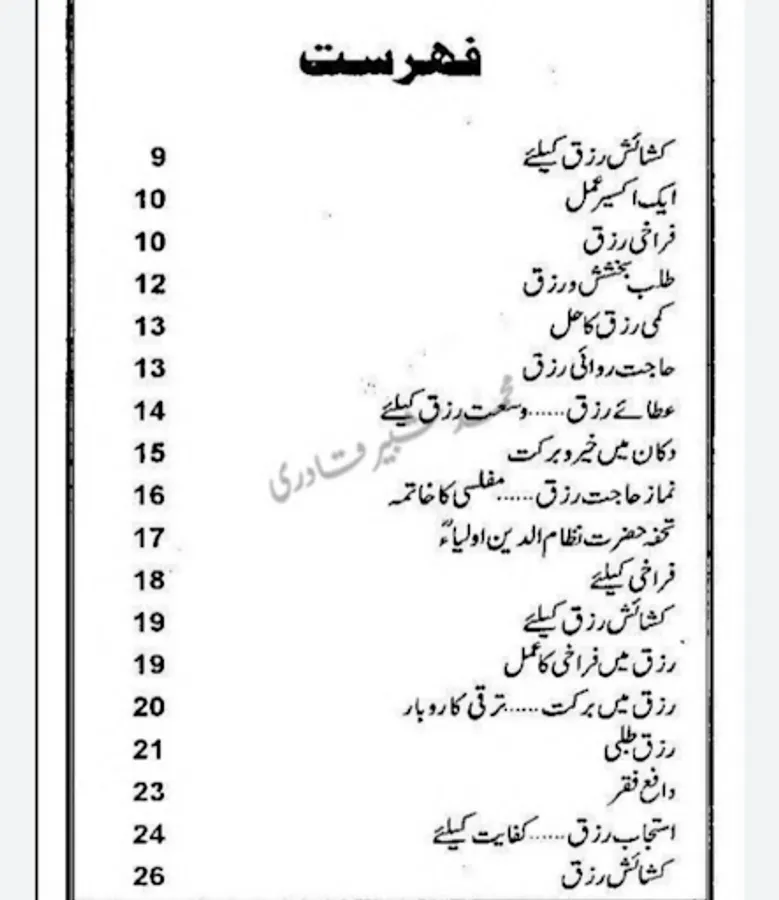 فہرست
کشائش رزق کیلئے 9
ایک اکسیر عمل 10
فراخی رزق 10
طلب بخشش و رزق 12
کمی رزق کا حل 13
حاجت روائی رزق 13
عطائے رزق......وسعت رزق کیلئے 14
دکان میں خیر و برکت 15
نماز حاجت رزق......مفلسی کا خاتمہ 16
تحفہ حضرت نظام الدین اولیاءؒ 17
فراخی کیلئے 18
کشائش رزق کیلئے 19
رزق میں فراخی کا عمل 19
رزق میں برکت......ترقی کاروبار 20
رزق طلبی 21
دافع فقر 23
استجاب رزق......کفایت کیلئے 24
کشائش رزق 26
محمد شبیر قادری